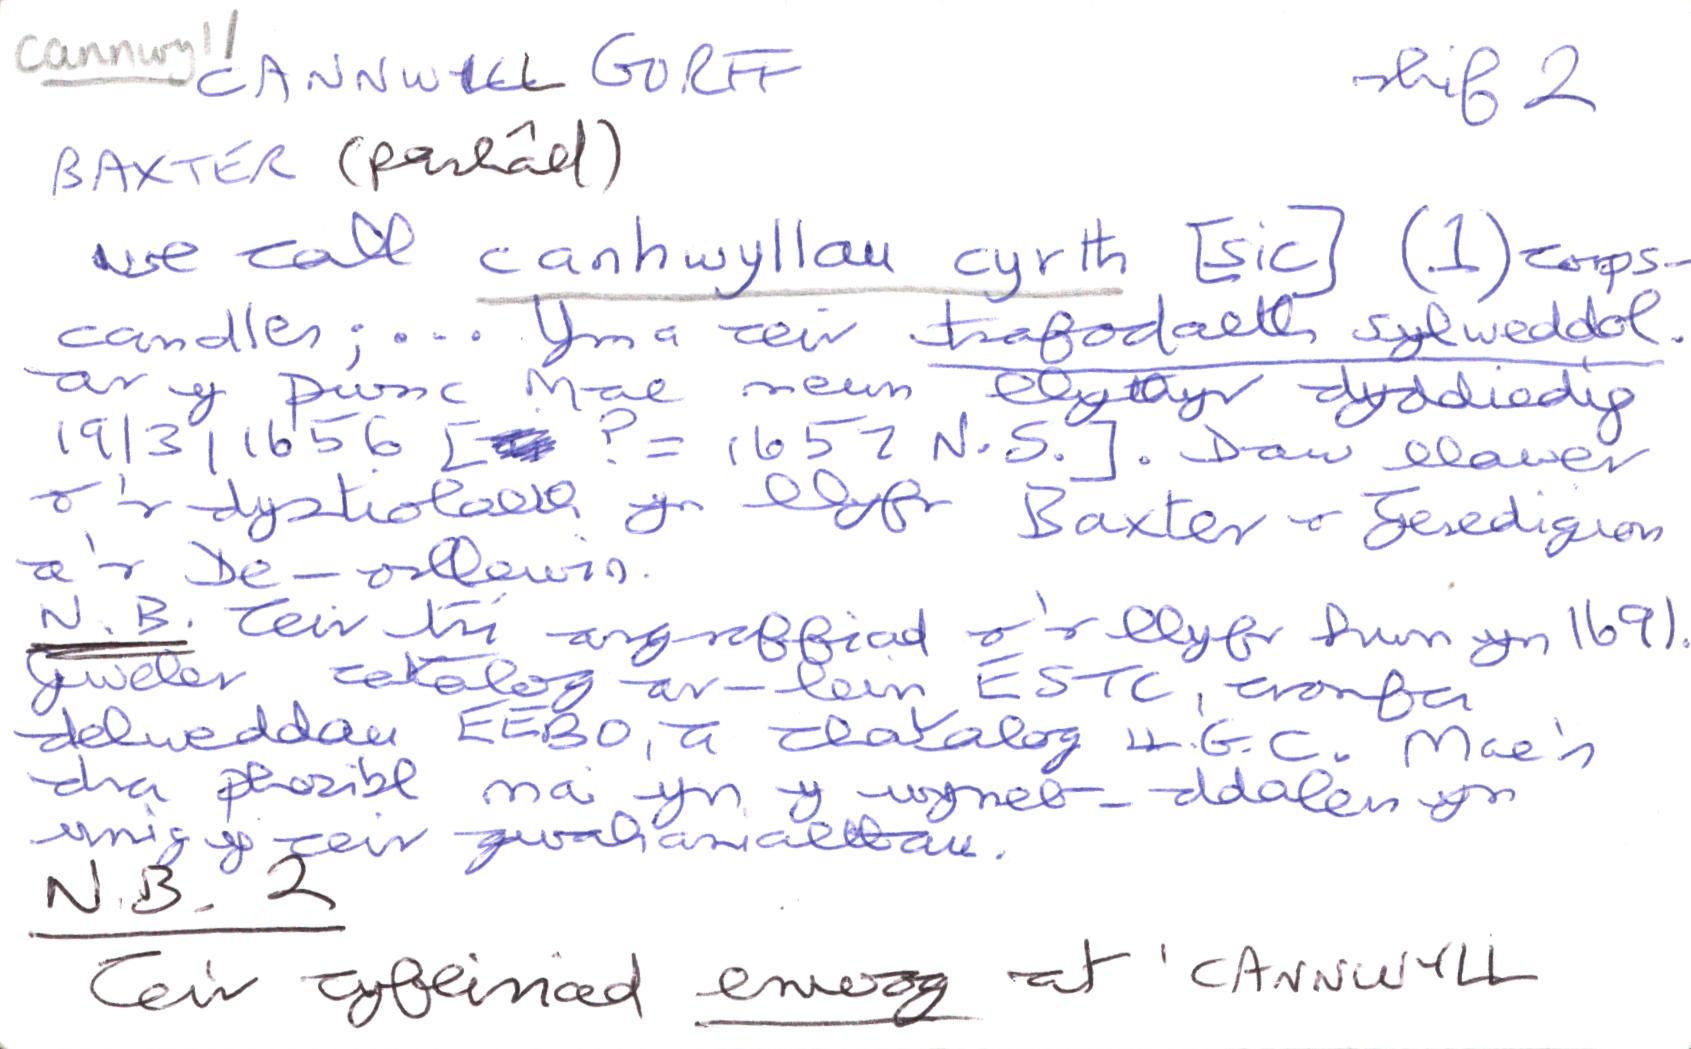 cannwyll
CANNWYLL GORFF rhif 2
BAXTER (parhâd)
we call canhwyllau cyrth [sic] (1) corps-
candles; .... Yma ceir trafodaeth sylweddol.
ar y pwnc Mae mewn llythyr dyddiedig
19/3/1656 [ ? = 1657 N.S.]. Daw llawer
o'r dystiolaeth yn llyfr Baxter o Geredigion
a'r De-orllewin.
N.B. Ceir tri argraffiad o'r llyfr hwn yn 1691.
Gweler catalog ar-lein ESTC, cronfa
delweddau EEBO, a chatalog Ll.G.C. Mae'n
dra phosibl mai yn y wyneb-ddalen yn
unig y ceir gwahaniaethau.
N.B. 2
Ceir cyfeiriad enwog at 'CANNWYLL